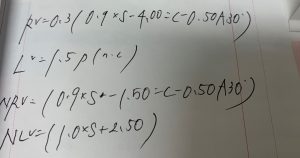 RV=0.3(0.9×S-4.00=C-0.50A30°
L^v=1.5p(n.c)
NRV=(0.9×S*-1.50=C-0.50A30°
NLV=(1.0×S+2.50)